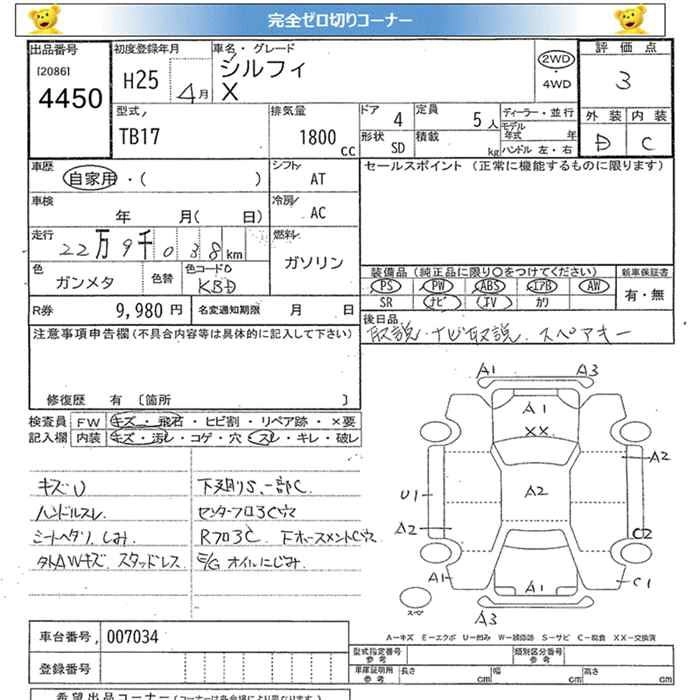 完全ゼロ切りコーナー
出品番号
[2086]
4450
初度登録年月
H25 4月
車名・グレード
シルフィ
X
2WD
・
4WD
評価点
3
外装 内装
D C
型式
TB17
排気量
1800 cc
ドア 4
形状 SD
定員 5人
積載 kg
ディーラー・並行
モデル年式 年
ハンドル 左・右
車歴
自家用・( )
シフト
AT
車検
年 月( 日)
冷房
AC
走行
22万9千038km
燃料
ガソリン
色 ガンメタ
色替
色コードNo
KBD
R券 9,980 円
名変通知期限 月 日
セールスポイント (正常に機能するものに限ります)
装備品(純正品に限り○をつけてください)
新車保証書
PS PW ABS エアB AW
SR ナビ TV カワ
有・無
後日品
取説・ナビ取説.スペアキー
注意事項申告欄(不具合内容等は具体的に記入して下さい)
修復歴 有 〔箇所 〕
検査員記入欄
FW キズ・飛石・ヒビ割・リペア跡・×要
内装 キズ・汚レ・コゲ・穴・スレ・キレ・破レ
キズU
ハンドルスレ
シートヘタリ、しみ
タホAWキズ スタッドレス
下廻りS、一部C
センターフロ3C穴
Rフロ3C 下ホースメントC穴
E/G オイルにじみ
A1 A3
A1
XX
A2
A2
U1
A2
C2
A1
A1
C1
スペア
A3
A-キズ E-エクボ U-凹み W-補修跡 S-サビ C-腐食 XX-交換済
車台番号 007034
登録番号
型式指定番号 参考
類別区分番号 参考
車庫証明用 参考
長さ cm 幅 cm 高さ cm
希望出品コーナー(コーナーは各会場により異なります)